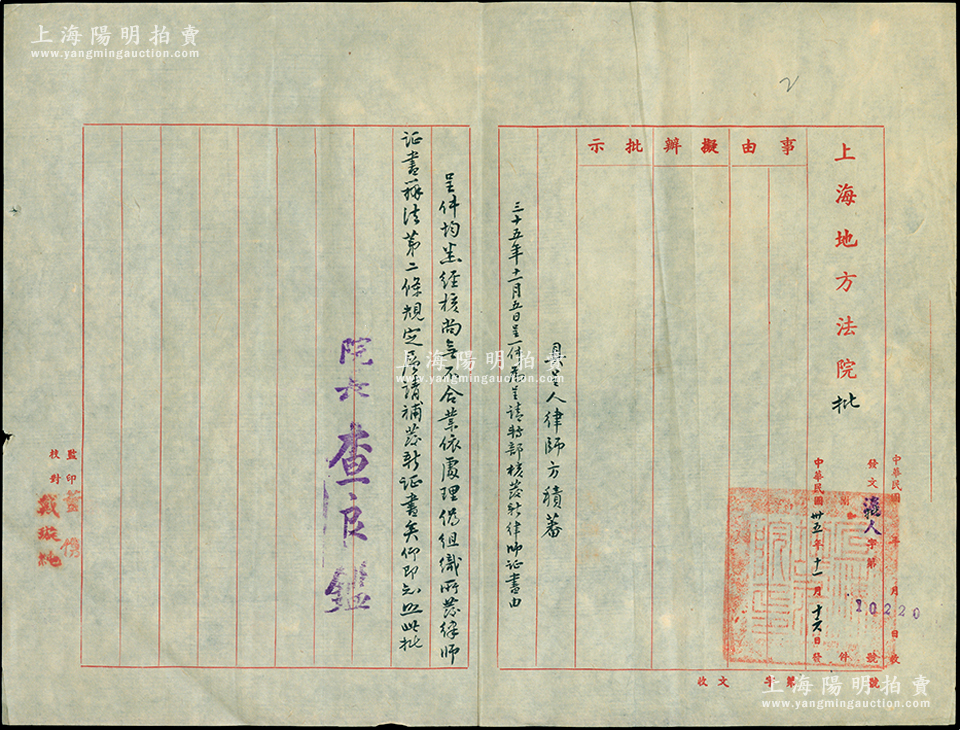 上海陽明拍賣
www.yangmingauction.com
2
上海地方法院批
中華民國 年 月 日收
發文滬人字第10220號
附 件
中華民國卅五年十一月十六日發
事由擬辦批示
具呈人律師方積蕃
三十五年十一月五日呈一件為呈請轉部核發新律師證書由
呈件均悉經核尚無不合業依處理偽組織所發律師
證書辦法第二條規定層請補發新證書矣仰即知照此批
院長查良鑑
監印
校對戴璇純
收文 字第 號
上海陽明拍賣
www.yangmingauction.com
上海陽明拍賣
www.yangmingauction.com